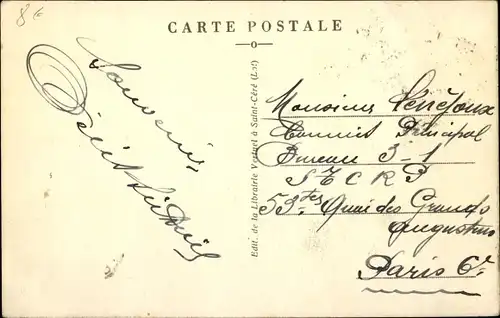 8€
CARTE POSTALE
Souvenir
Petit
Edit. de la Librairie Vertuel à Saint-Céré (Lot)
Monsieur
Commis Principal
Bureau 3-1
S T C R P
53 Quai des Grands
Augustins
Paris 6e